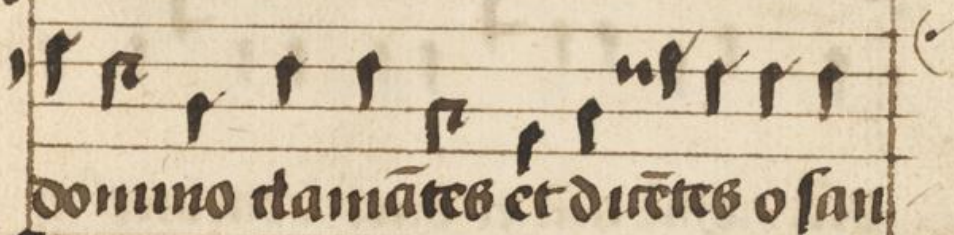 domino clamātes et dicētes o san